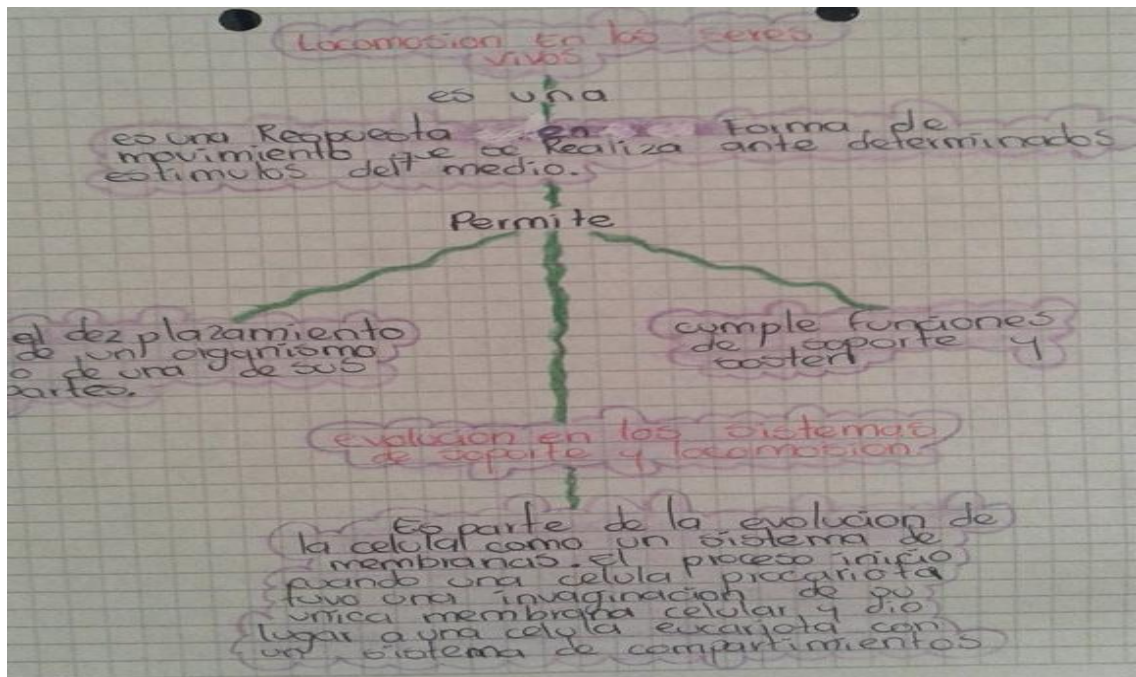 Locomocion en los seres
vivos
es una
es una Respuesta en forma de
movimiento que se Realiza ante determinados
estimulos del medio.
Permite
el dezplazamiento
de un organismo
o de una de sus
partes.
cumple funciones
de soporte y
sosten
evolucion en los sistemas
de soporte y locomocion.
Es parte de la evolucion de
la celula como un sistema de
membranas. El proceso inicio
cuando una celula procariota
tuvo una invaginacion de su
unica membrana celular y dio
lugar a una celula eucariota con
un sistema de compartimientos